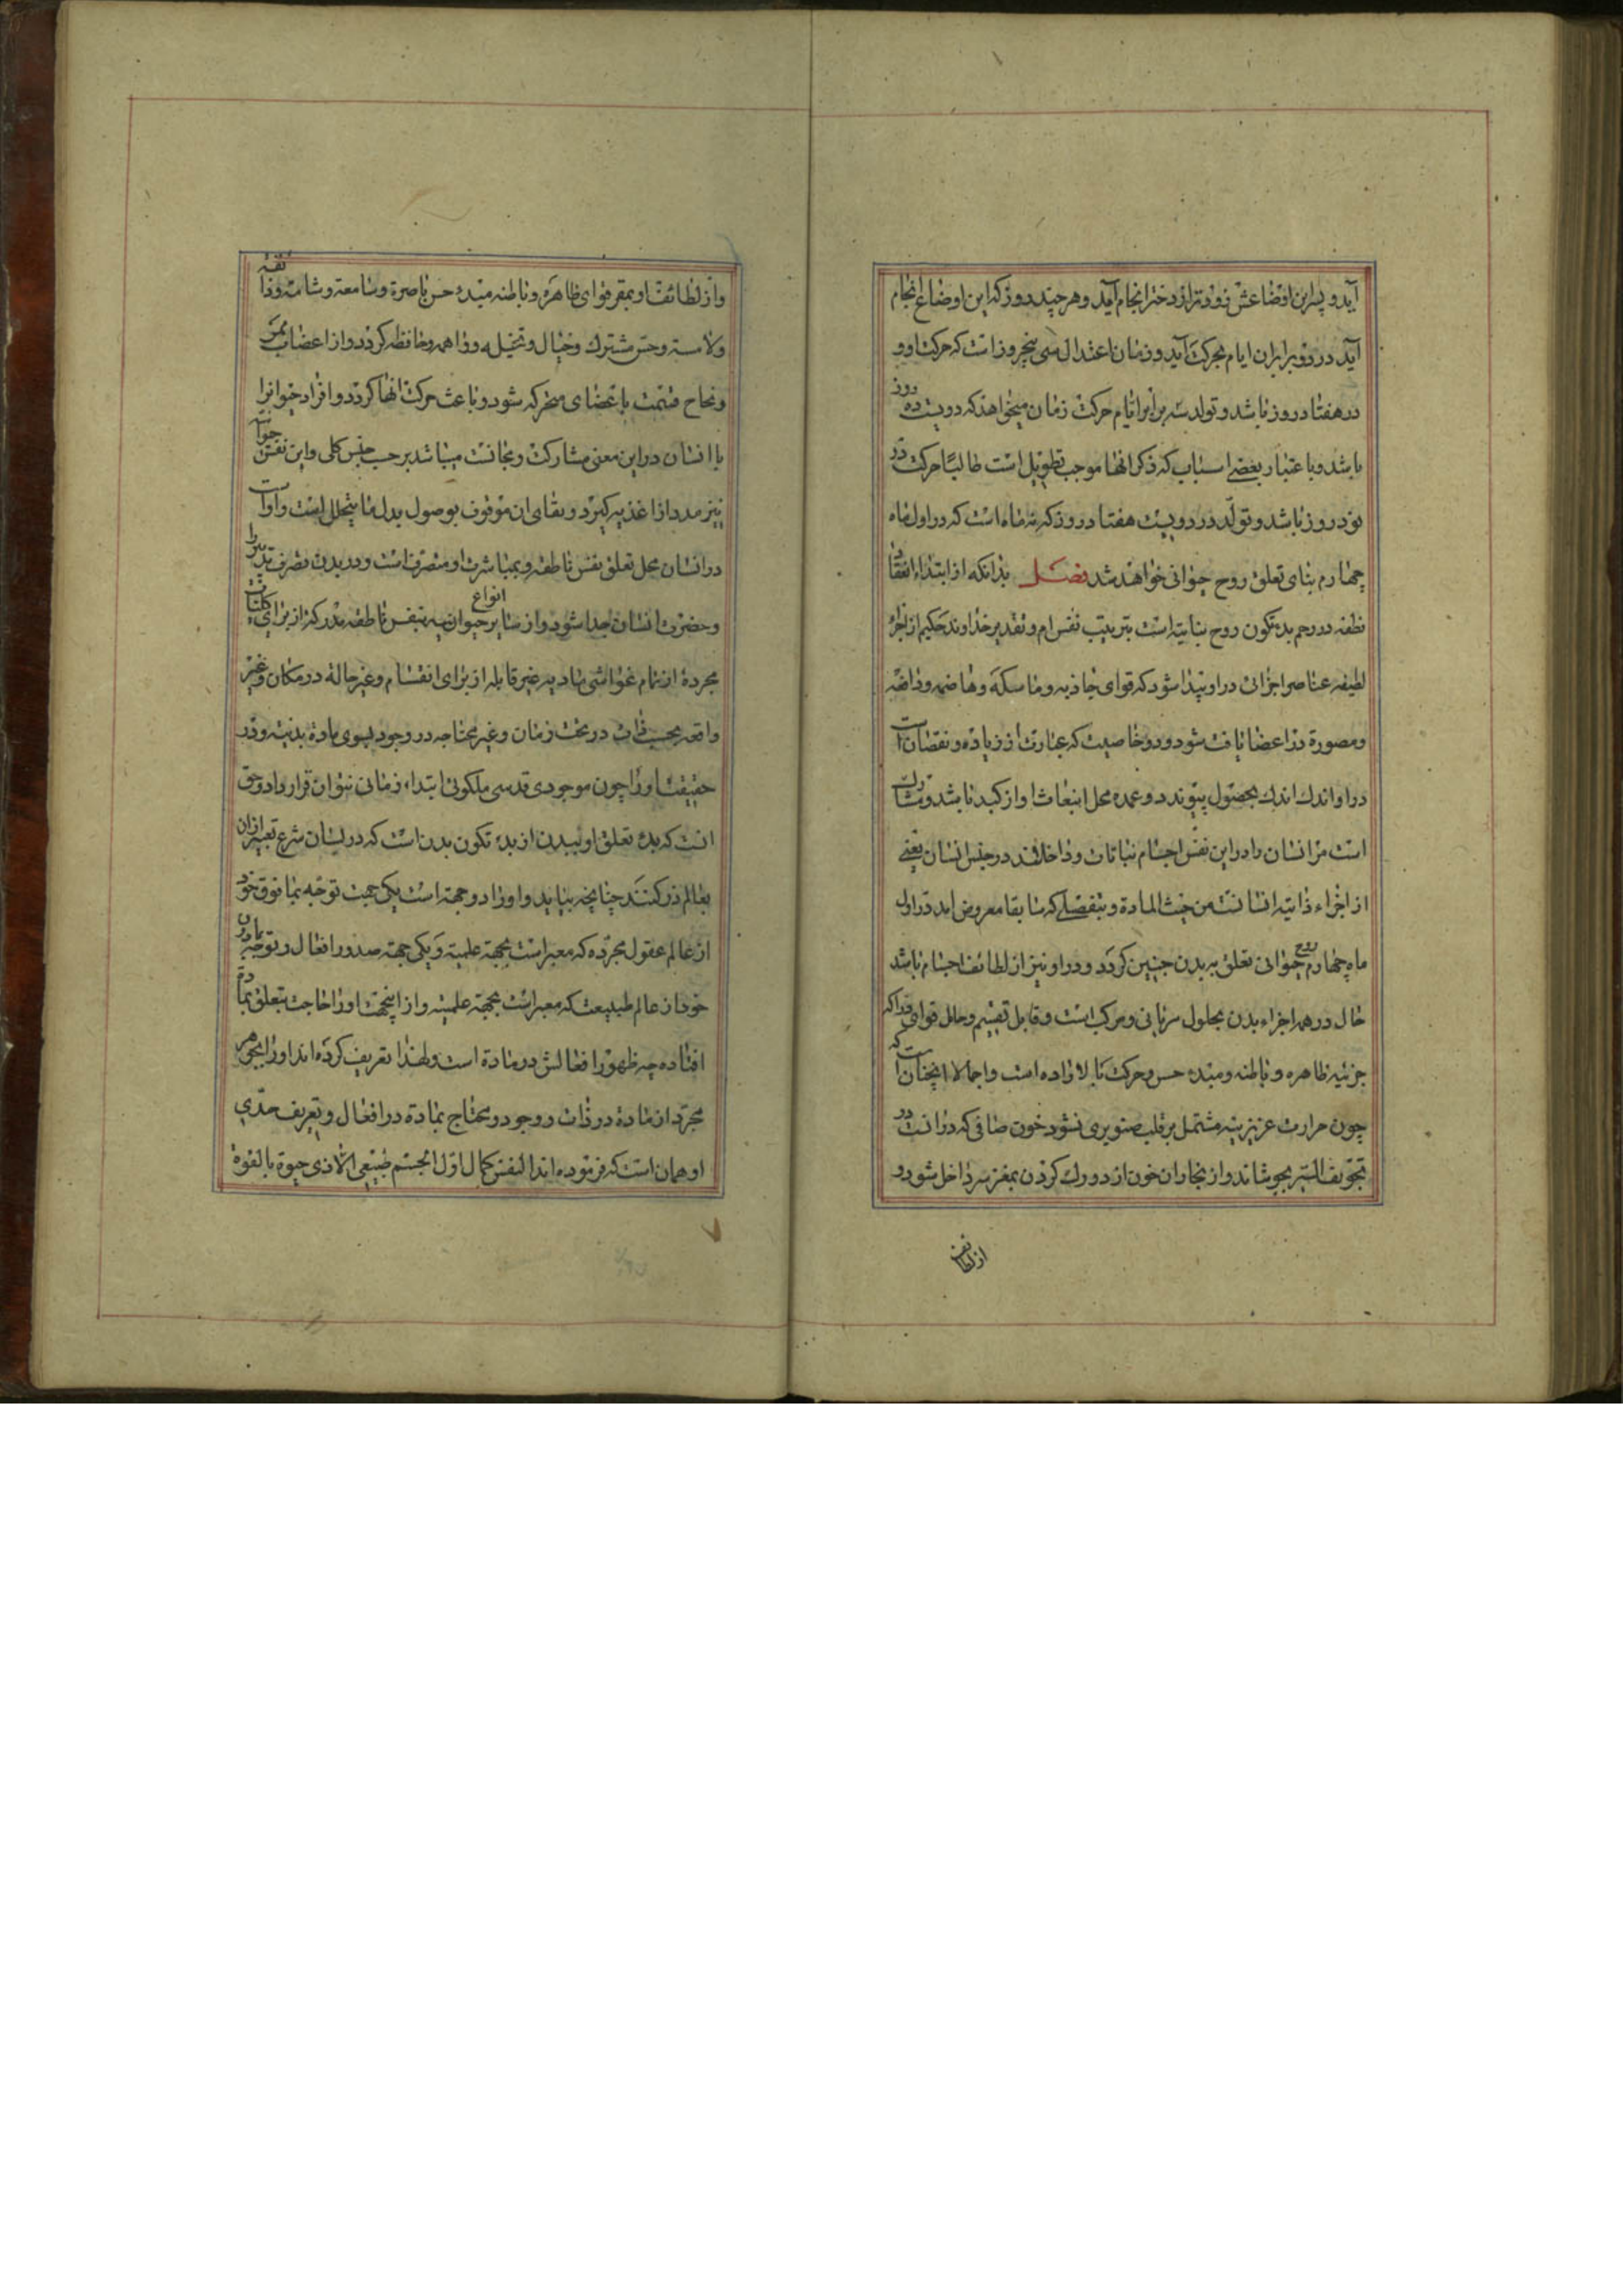 آید و پس این اوضاعش زودتر از دختر انجام آید و هر چند روز که این اوضاع انجام
آید در دو برابر ان ایام بحرکت آید و زمان اعتدال سی پنجروز است که حرکت او
در هفتاد روز باشد و تولد سه برابر ایام حرکت زمان میخواهد که دویست ده روز
باشد و باعتبار بعضی اسباب که ذکر انها موجب تطویل است غالبًا حرکت در
نود روز باشد و تولّد در دویست هفتاد روز که نه ماه است که در اول ماه
چهارم بنای تعلق روح حیوانی خواهند شد فصل بدانکه از ابتداء انعقاد
نطفه در رحم بدء تکون روح نباتیه است بتربیت نفس ام و تقدیر خداوند حکیم از اجزاء
لطیفه عناصر اجزائی در او پیدا شود که قوای جاذبه و ماسکه و هاضمه و دافعه
و مصورة در اعضا یافت شود و دو خاصیت که عبارت از زیاده و نقصان است
در او اندك اندك بحصول پیوندد و عمده محل انبعاث او از کبد باشد و مشارك
است مر انسان را در این نفس اجسام نباتات و داخلاند در جنس انسان یعنی
از اجزاء ذاتیه انسانند من حیث المادة و بتفصیلی که سابقا معروض امد در اول
ماه چهارم روح حیوانی تعلق به بدن جنین کردد و در او نیز از لطائف اجسام باشد
حال در همه اجزاء بدن بحلول سریانی و مرکب است و قابل تقسیم و حامل قوای دراکه
جزئیه ظاهره و باطنه و مبدء حس و حرکت بالاراده است و اجمالا انچنان است که
چون حرارت غریزیه مشتمل بر قلب صنوبری نشود خون صافی که در انست در
تجویف الیسر بجوشاند و از بخار ان خون از دو رك کردن بمغز سر داخل شود و
از لطائف
و از لطائف او بمقر قوای ظاهره و باطنه مبدء حس باصرة و سامعة و شامة و ذائقه
و لامسة و حس مشترك و خیال و متخیله و واهمه و حافظه کردد و از اعضاب بمر
و نخاع قسمت باعضای متحرکه شود و باعث حرکت انها کردد و افراد حیوانرا
با انسان در این معنی مشارکت و مجانست میباشد بر حسب جنس کلی و این نفس حیوانیه
نیز مدد از اغذیه کیرد و بقای ان موقوف بوصول بدل ما یتحلل است و او است
در انسان محل تعلق نفس ناطقه و بمباشرت او متصرف است در بدن تصرف تدبیر را
و حضرت انسان جدا شود از سایر انواع حیوان به نفس ناطقه مدرکه از برای کلیات
مجردة از تمام غواشی مادیه غیر قابله از برای انقسام و غیر حالة در مکان و غیر
واقعه بحسب ذات در تحت زمان و غیر محتاجه در وجود بسوی مادة بدنیه و در
حقیقت او را چون موجودی قدسی ملکوتی ابتداء زمانی نتوان قرار داد و حق
انست که بدء تعلق او ببدن از بدء تکون بدن است که در لسان شرع تعبیر از ان
بعالم ذر کنند چنانچه بیاید و او را دو جهة است یکی جهت توجه بما فوق خود
از عالم عقول مجرده که معبر است بجهة علمیة و یکی جهة صدور افعال و توجه بمادون
خود از عالم طبیعت که معبر است بجهة عملیة و از اینجهة او را حاجت بتعلق بمادة
افتاده چه ظهور افعالش در مادة است و لهذا تعریف کرده اند او را بجوهر
مجرد از مادة در ذات و وجود و محتاج بمادة در افعال و تعریف حدّی
او همان است که فرموده اند النفس کمال اوّل لجسم طبیعی الی ذی حیوة بالقوة